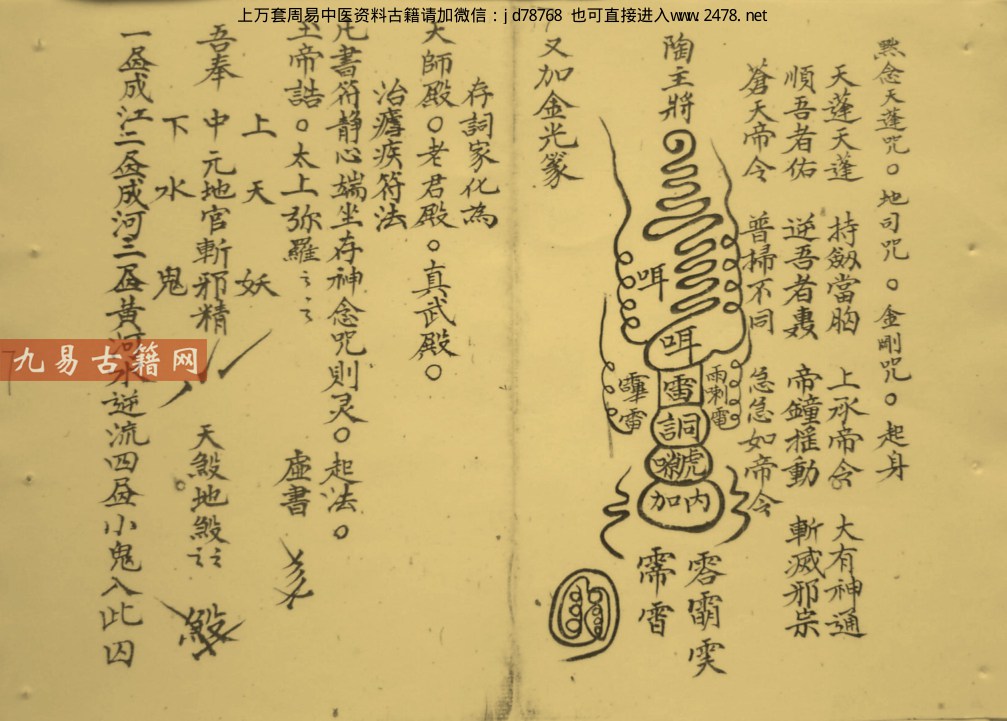 上万套周易中医资料古籍请加微信：jd78768 也可直接进入www.2478.net
黙念天蓬咒。地司咒。金剛咒。起身
天蓬天蓬 持劔當胸 上承帝令 大有神通
順吾者佑 逆吾者 帝鐘摇動 斬滅邪宗
蒼天帝令 普掃不同 急急如帝令
陶主將
咡
咡
雷
詞
號
内加
雷
電
電
霄
霸
又加金光篆
存詞家化為
天師殿。老君殿。真武殿。
治瘧疾符法
凡書符静心端坐存神念咒則灵。起法。
玉帝誥。太上弥羅〻〻 虚書
上天妖
吾奉 中元地官斬邪精 天殺地殺〻〻
下水鬼
一𥁞成江二𥁞成河三𥁞黄河水逆流四𥁞小鬼入此囚
九易古籍网